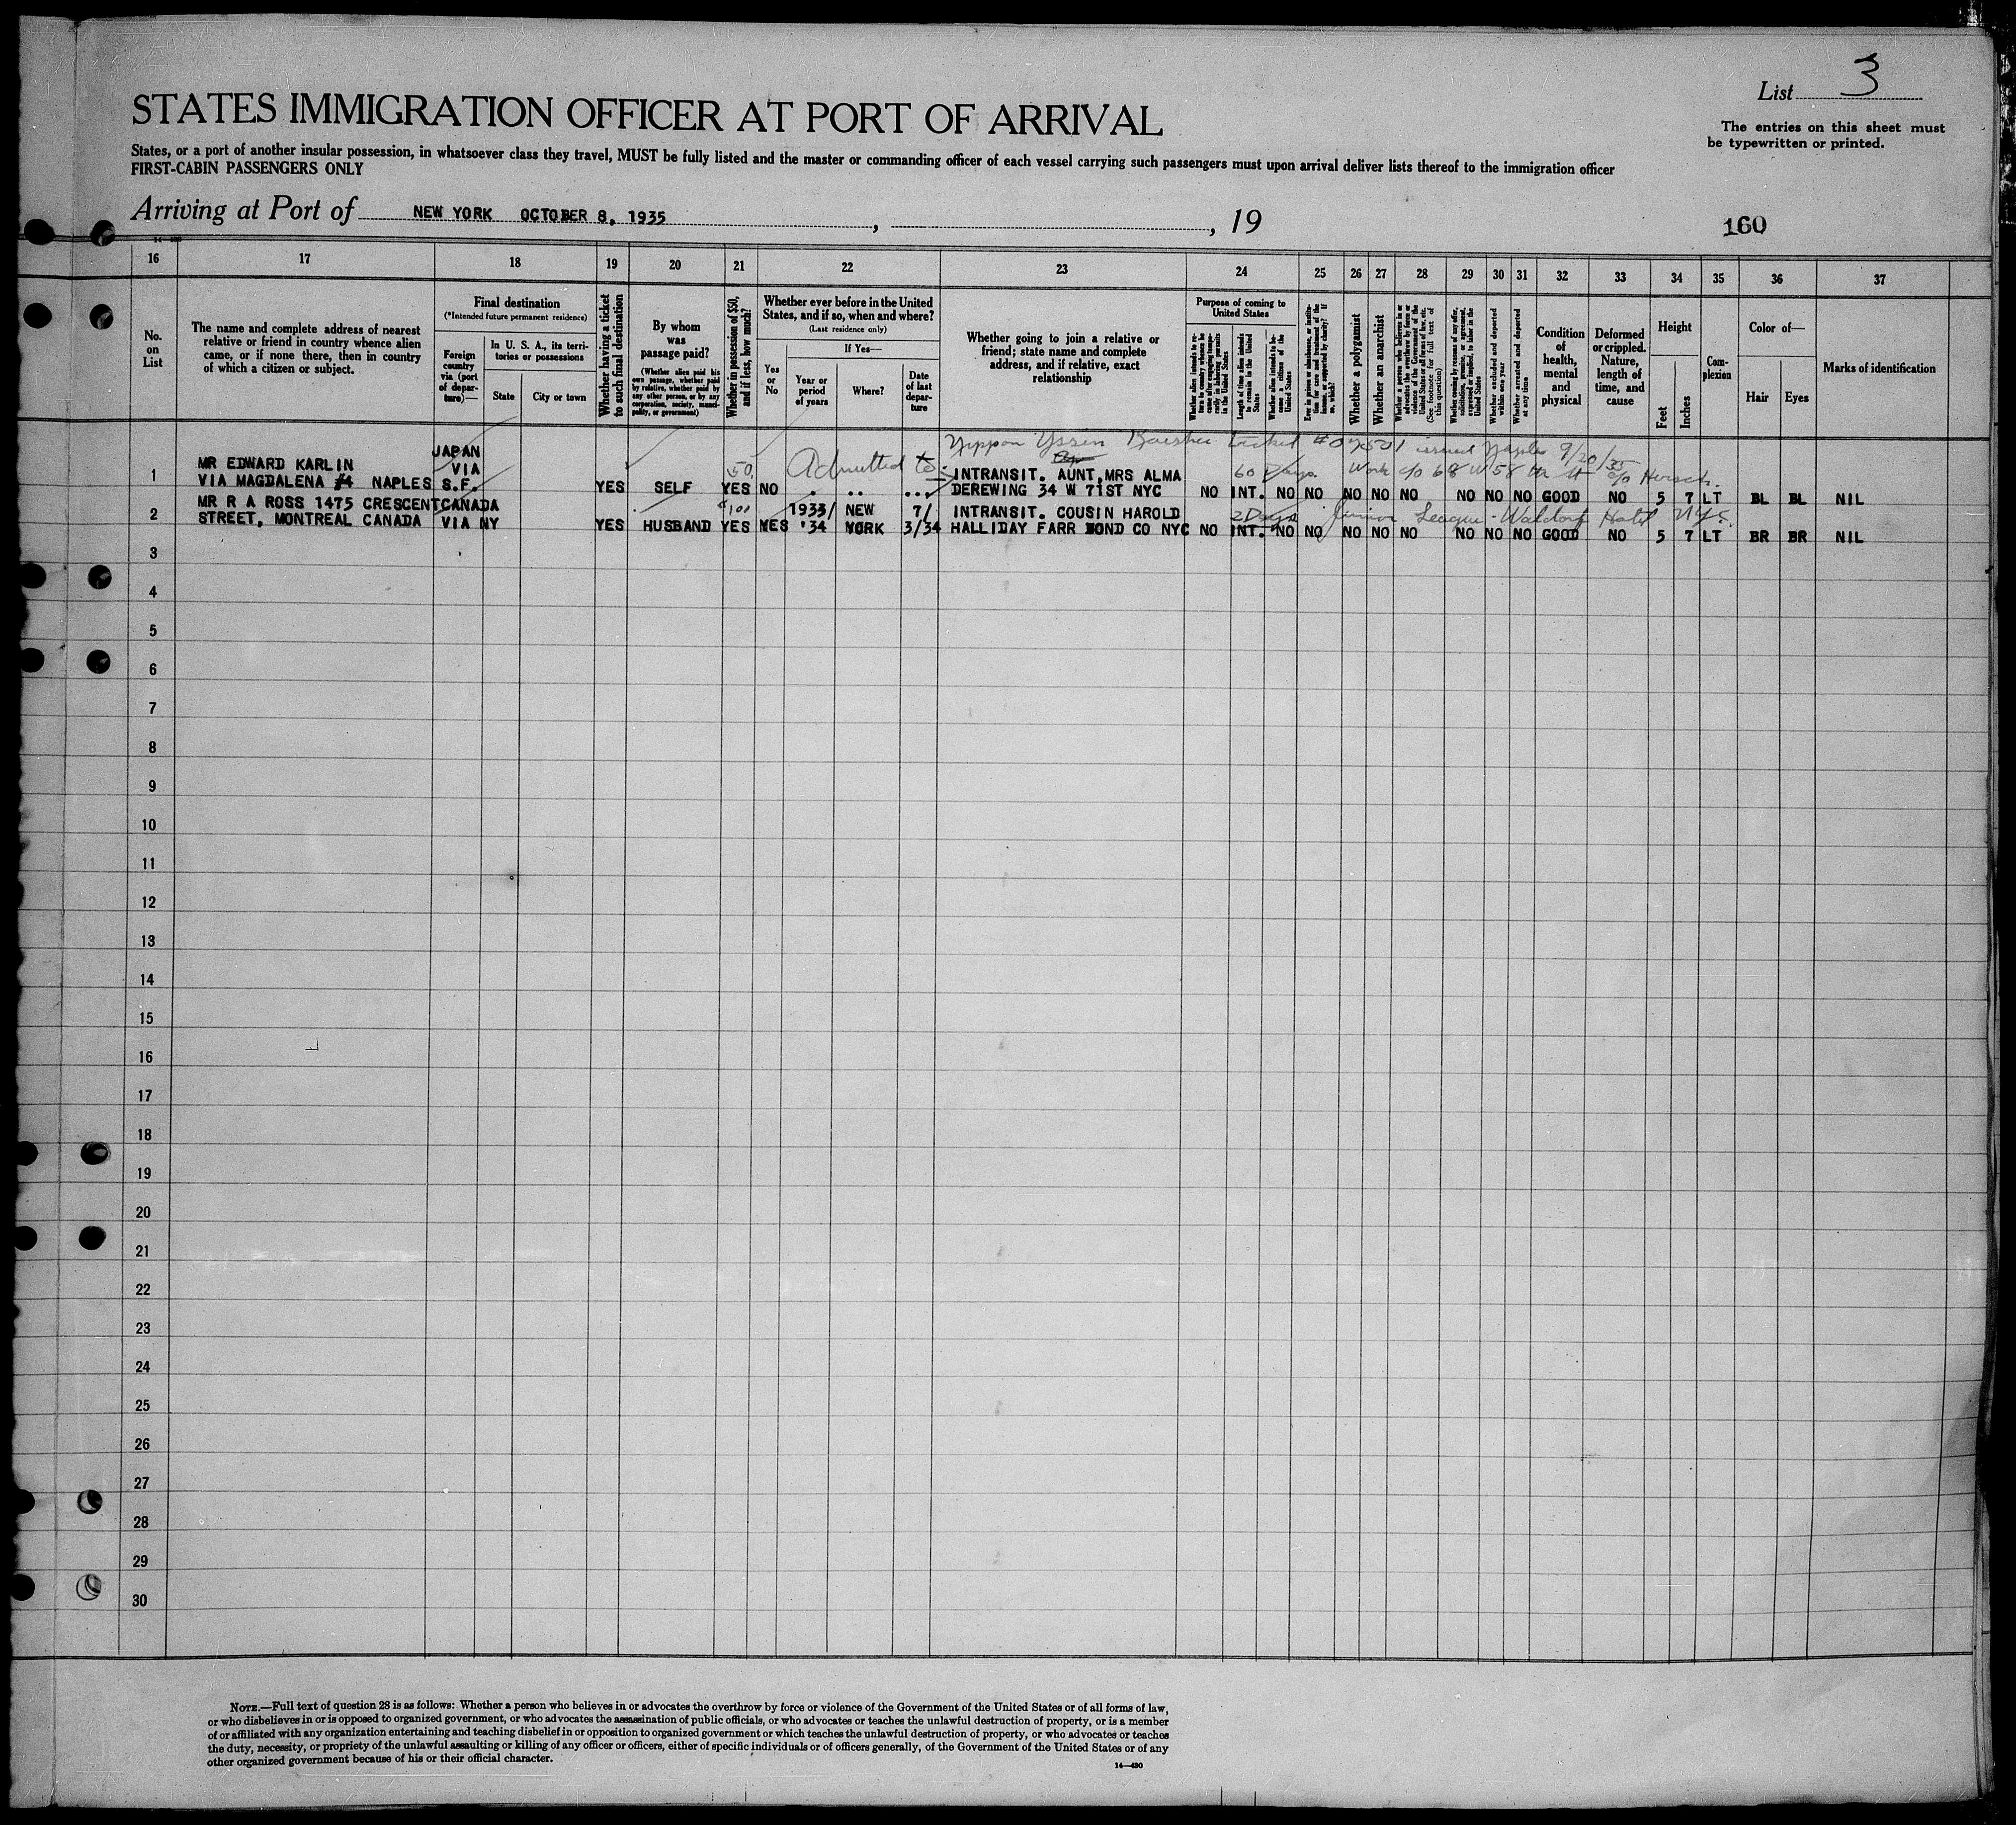 List 3
STATES IMMIGRATION OFFICER AT PORT OF ARRIVAL
The entries on this sheet must
be typewritten or printed.
States, or a port of another insular possession, in whatsoever class they travel, MUST be fully listed and the master or commanding officer of each vessel carrying such passengers must upon arrival deliver lists thereof to the immigration officer
FIRST-CABIN PASSENGERS ONLY
Arriving at Port of NEW YORK OCTOBER 8, 1935, , 19
160
16 17 18 19 20 21 22 23 24 25 26 27 28 29 30 31 32 33 34 35 36 37
No.
on
List
The name and complete address of nearest
relative or friend in country whence alien
came, or if none there, then in country
of which a citizen or subject.
Final destination
(*Intended future permanent residence)
Foreign
country
via (port
of depar-
ture)—
In U. S. A., its terri-
tories or possessions
State
City or town
Whether having a ticket
to such final destination
By whom
was
passage paid?
(Whether alien paid his
own passage, whether paid
by relative, whether paid by
any other person, or by any
corporation, society, munici-
pality, or government)
Whether in possession of $50,
and if less, how much?
Whether ever before in the United
States, and if so, when and where?
(Last residence only)
Yes
or
No
If Yes—
Year or
period
of years
Where?
Date
of last
depar-
ture
Whether going to join a relative or
friend; state name and complete
address, and if relative, exact
relationship
Purpose of coming to
United States
Length of time alien intends
to remain in the United
States
Whether alien intends to be-
come a citizen of the
United States
Whether a polygamist
Whether an anarchist
(See footnote for full text of
this question)
Whether excluded and deported
within one year
Whether arrested and deported
at any time
Condition
of
health,
mental
and
physical
Deformed
or crippled.
Nature,
length of
time, and
cause
Height
Feet
Inches
Com-
plexion
Color of—
Hair
Eyes
Marks of identification
9/20/35
Admitted to
60 Days
1 MR EDWARD KARLIN JAPAN VIA 50 INTRANSIT. AUNT, MRS ALMA
VIA MAGDALENA #4 NAPLES S.F. YES SELF YES NO . .. ... DEREWING 34 W 71ST NYC NO INT. NO NO NO NO NO NO NO NO GOOD NO 5 7 LT BL BL NIL
Junior League - Waldorf Hotel NYC.
2 MR R A ROSS 1475 CRESCENT CANADA $100 1933/ NEW 7/ INTRANSIT. COUSIN HAROLD 2 Days
STREET, MONTREAL CANADA VIA NY YES HUSBAND YES YES '34 YORK 3/34 HALLIDAY FARR BOND CO NYC NO INT. NO NO NO NO NO NO NO NO GOOD NO 5 7 LT BR BR NIL
3
4
5
6
7
8
9
10
11
12
13
14
15
16
17
18
19
20
21
22
23
24
25
26
27
28
29
30
NOTE.—Full text of question 28 is as follows: Whether a person who believes in or advocates the overthrow by force or violence of the Government of the United States or of all forms of law,
or who disbelieves in or is opposed to organized government, or who advocates the assassination of public officials, or who advocates or teaches the unlawful destruction of property, or is a member
of or affiliated with any organization entertaining and teaching disbelief in or opposition to organized government or which teaches the unlawful destruction of property, or who advocates or teaches
the duty, necessity, or propriety of the unlawful assaulting or killing of any officer or officers, either of specific individuals or of officers generally, of the Government of the United States or of any
other organized government because of his or their official character.
14—430